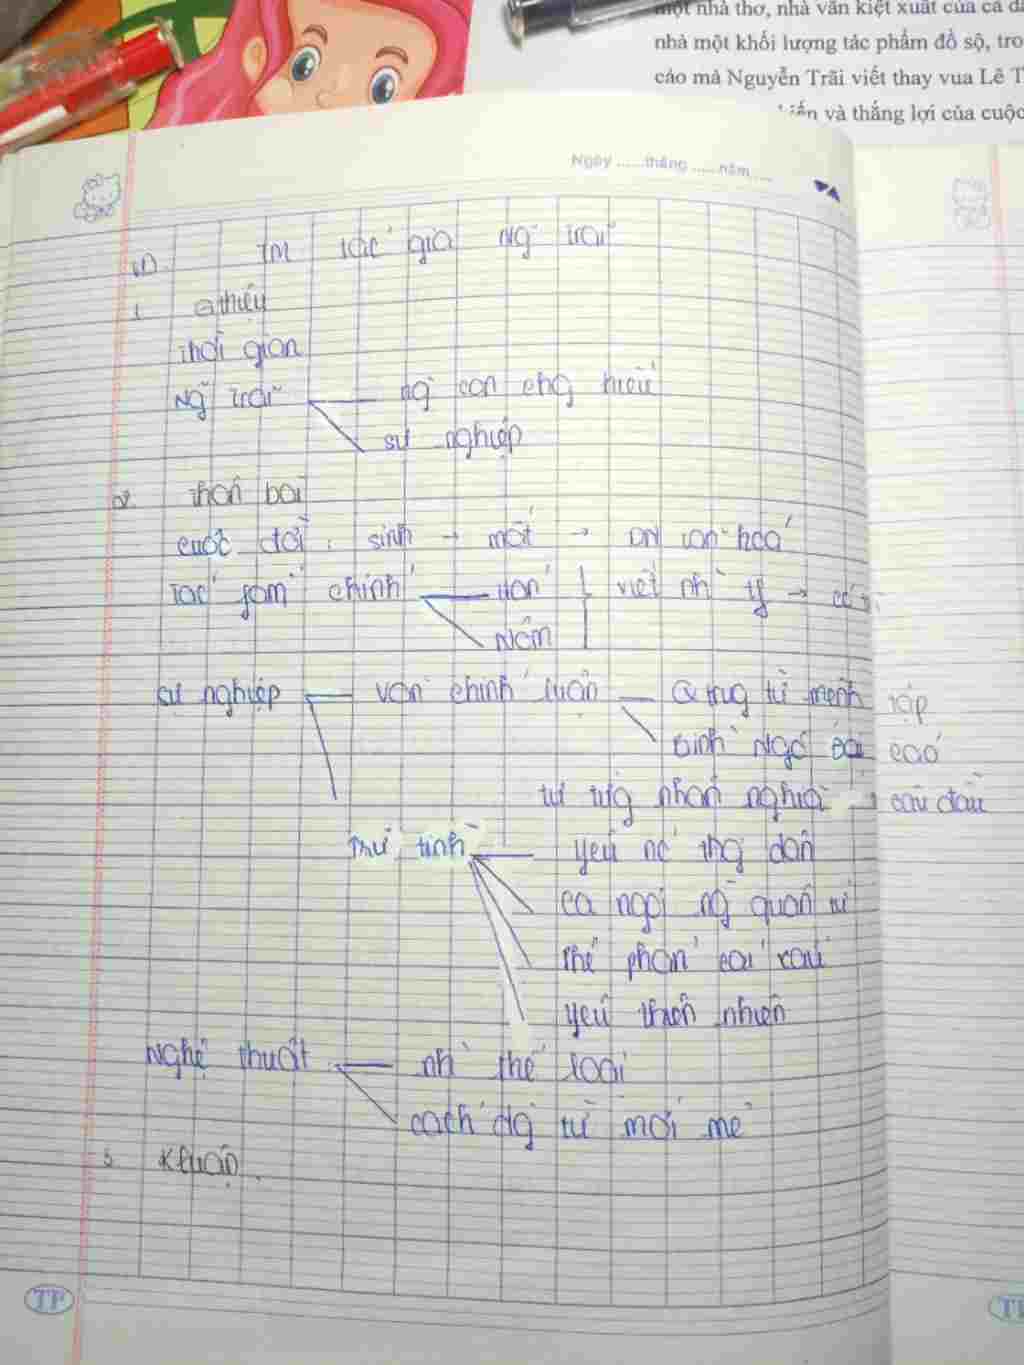 một nhà thơ, nhà văn kiệt xuất của cả
nhà một khối lượng tác phẩm đồ sộ, tro
cáo mà Nguyễn Trãi viết thay vua Lê T
và thắng lợi của cuộc
Ngày ......tháng ......năm ....
TM tác giả Ng Trãi
1. Gthiệu
thời gian
Ng Trãi ng con ehg hiếu
sự nghiệp
2. thân bài
cuộc đời: sinh → mất → DN văn hoá
tác fẩm chính Hán viết nh
Nôm
sự nghiệp văn chính luận Q trung từ mệnh tập
Bình Ngô Đại cáo
tư tưg nhân nghĩa → câu đầu
trữ tình yêu nc thg dân
ca ngợi ng quân tử
phán cái xấu
yêu thiên nhiên
Nghệ thuật nh thể loại
cách dg từ mới mẻ
3. Kluận.
TP